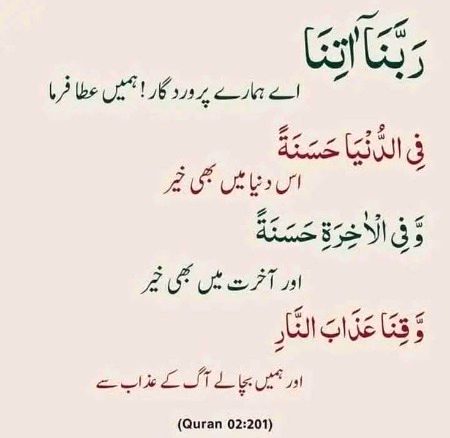 رَبَّنَآ اٰتِنَا
اے ہمارے پروردگار! ہمیں عطا فرما
فِی الدُّنْیَا حَسَنَةً
اس دنیا میں بھی خیر
وَّ فِی الْاٰخِرَةِ حَسَنَةً
اور آخرت میں بھی خیر
وَّ قِنَا عَذَابَ النَّارِ
اور ہمیں بچالے آگ کے عذاب سے
(Quran 02:201)